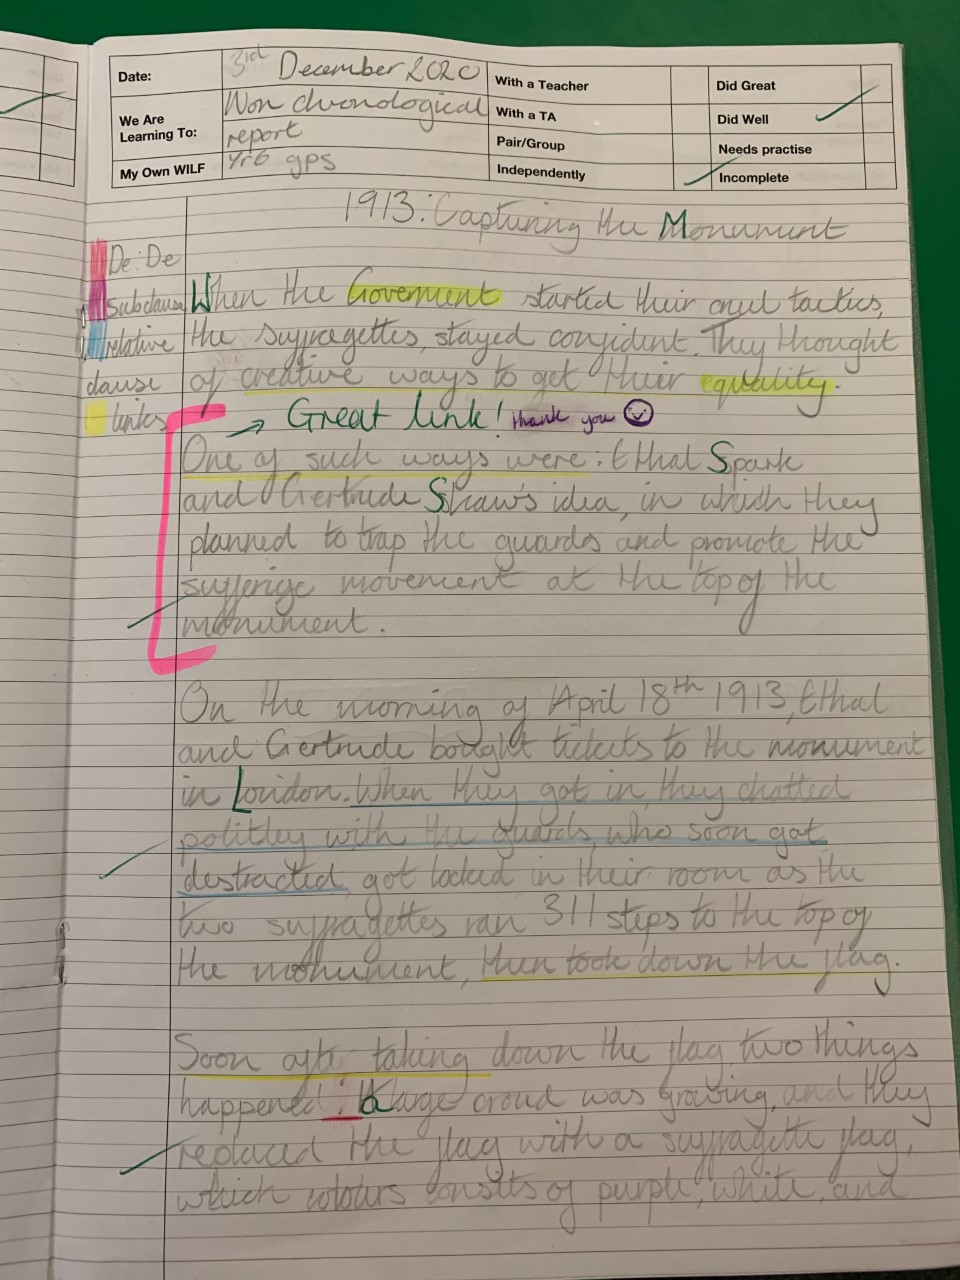 Date: 3rd December 2020
With a Teacher
Did Great
We Are Learning To: Non chronological report
With a TA
Did Well
Pair/Group
Needs practise
My Own WILF Yr6 gps
Independently
Incomplete
1913: Capturing the Monument
De:De
subclause
relative
clause
links
When the Goverment started their cruel tactics,
the suffragettes, stayed confident. They thought
of creative ways to get their equality.
→ Great link! thank you
One of such ways were: Ethal Spark
and Gertrude Shaw's idea, in which they
planned to trap the guards and promote the
sufferige movement at the top of the
monument.
On the morning of April 18th 1913, Ethal
and Gertrude bought tickets to the monument
in London. When they got in, they chatted
politley with the guards, who soon got
destracted, got locked in their room as the
two suffragettes ran 311 steps to the top of
the monument, then took down the flag.
Soon after taking down the flag two things
happened: a large croud was growing, and they
replaced the flag with a suffragette flag,
which colours consits of purple, white, and